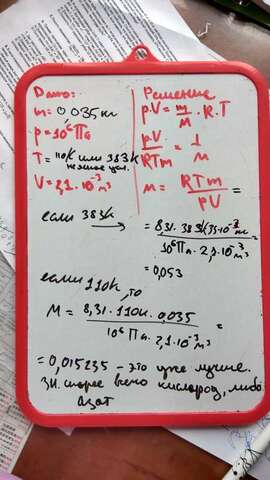 Дано:
m=0,035кг
p=10⁶Па
T=110К или 383К
V=2,1·10⁻³м³
Решение
p.V=m/M·R.T
pV/RTm=1/M
M=RTm/pV=
если 383К
=8,31·383К·35·10⁻³кг/10⁶Па·2,1·10⁻³м³=
=0,053
если 110К, то
M=8,31·110К·0,035/10⁶Па·2,1·10⁻³м³=
=0,015235 – это уже лучше.
Зн. скорее всего кислород, либо
азот